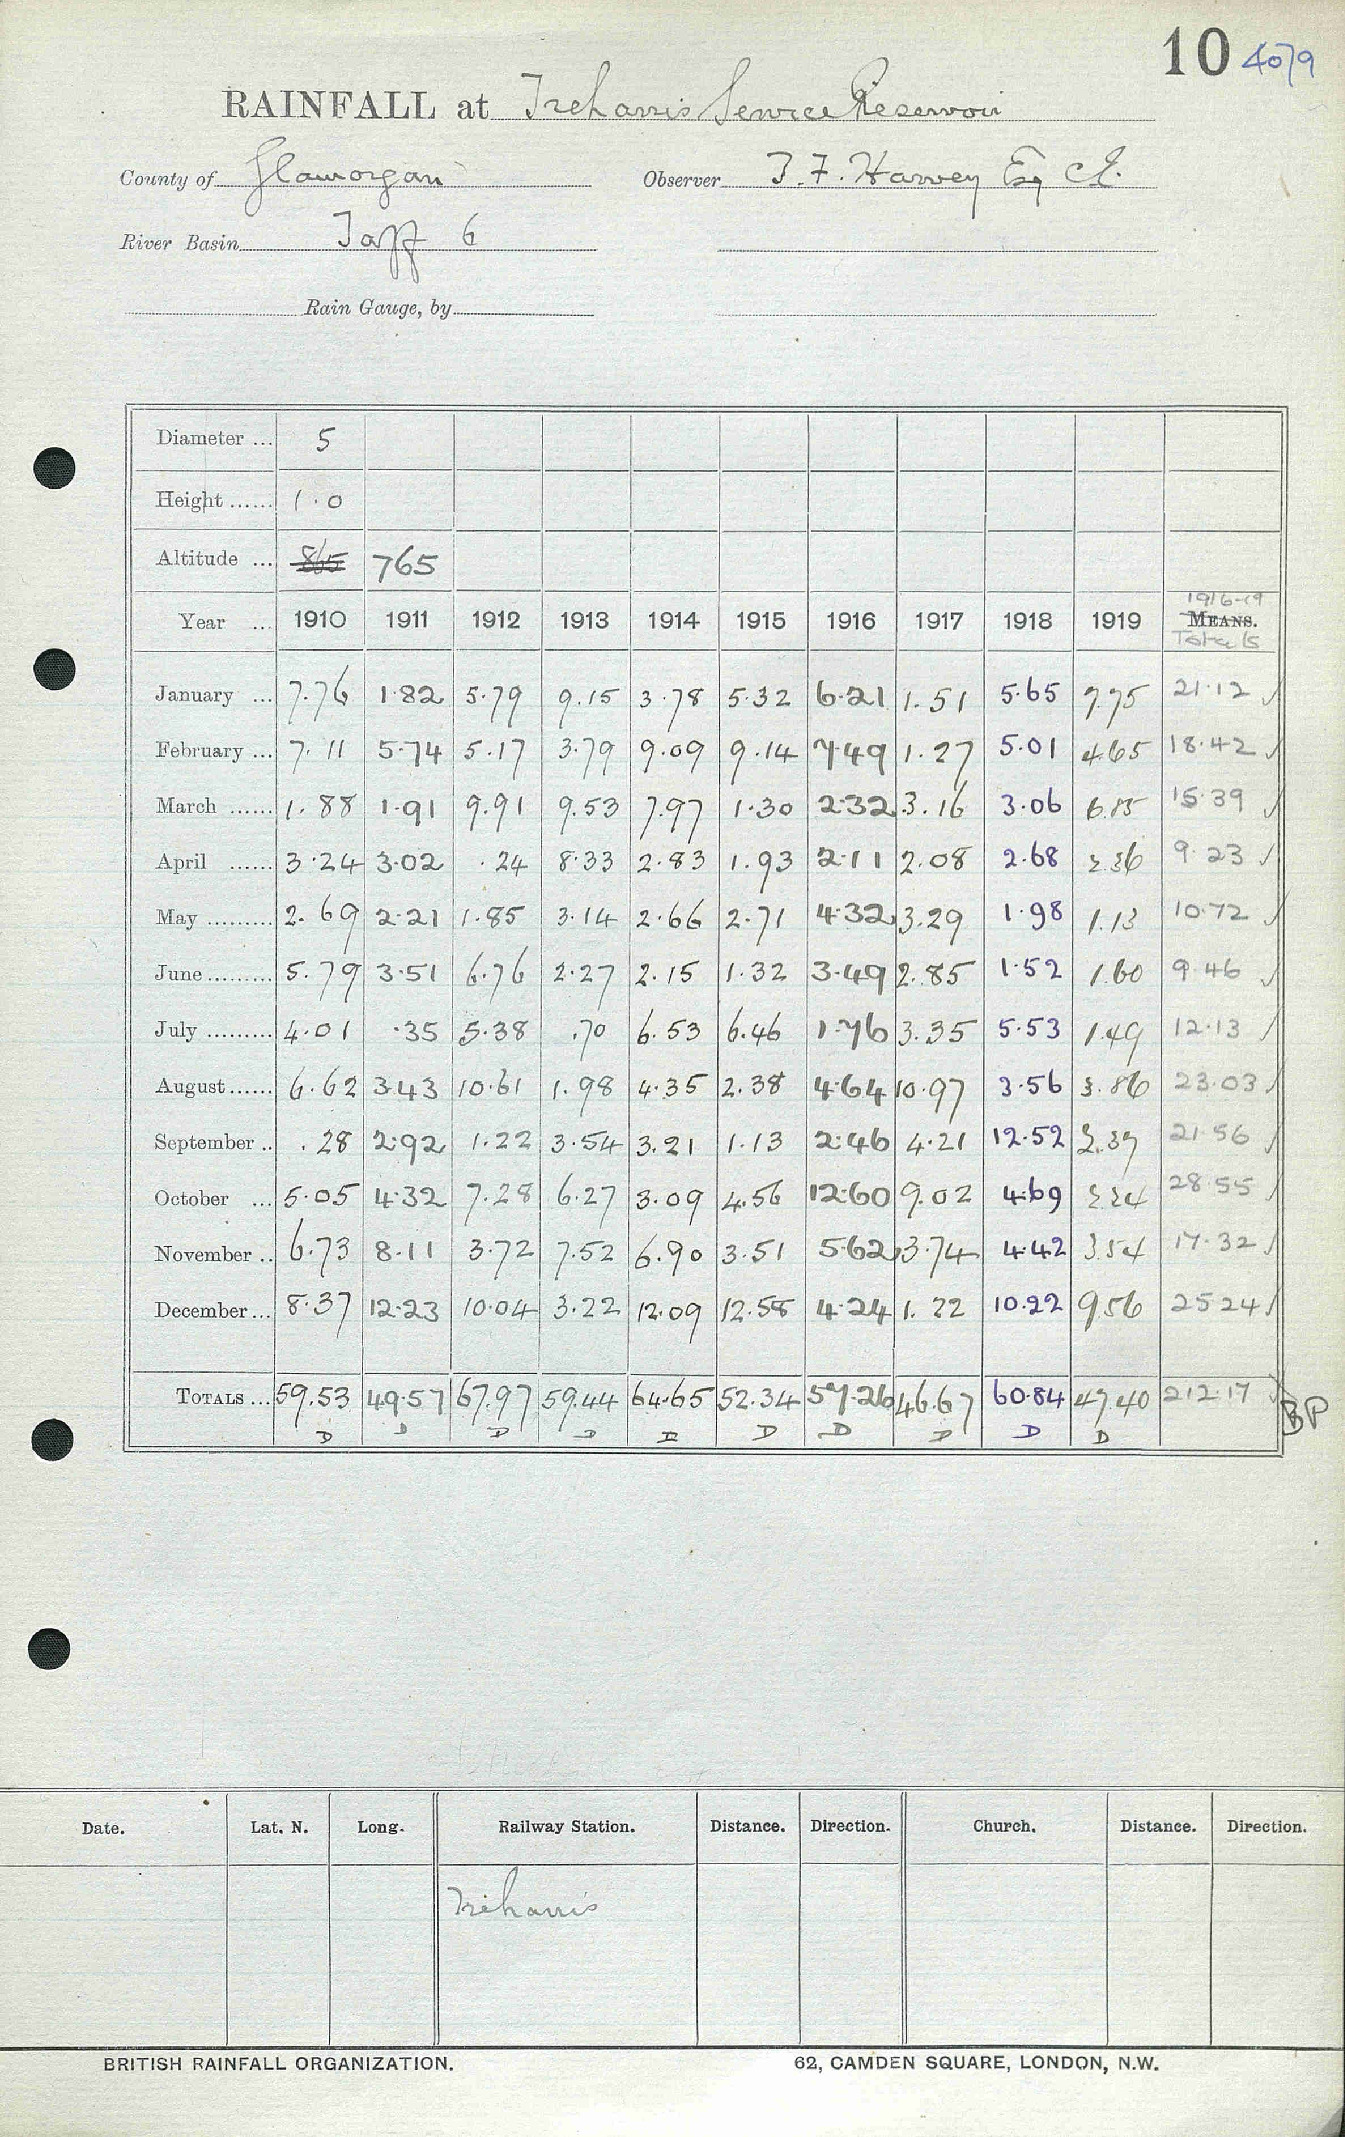 10 4079
RAINFALL at Treharris Service Reservoir
County of Glamorgan Observer T. F. Harvey Esq C.E.
River Basin Taff 6
Rain Gauge, by
Diameter ... 5
Height ...... 1.0
Altitude ... 865 765
1916-19
Year ... 1910 1911 1912 1913 1914 1915 1916 1917 1918 1919 MEANS.
Totals
January ... 7.76 1.82 5.79 9.15 3.78 5.32 6.21 1.51 5.65 7.75 21.12 ✓
February ... 7.11 5.74 5.17 3.79 9.09 9.14 7.49 1.27 5.01 4.65 18.42 ✓
March ...... 1.88 1.91 9.91 9.53 7.97 1.30 2.32 3.16 3.06 6.85 15.39 ✓
April ...... 3.24 3.02 .24 8.33 2.83 1.93 2.11 2.08 2.68 2.36 9.23 ✓
May ......... 2.69 2.21 1.85 3.14 2.66 2.71 4.32 3.29 1.98 1.13 10.72 ✓
June ......... 5.79 3.51 6.76 2.27 2.15 1.32 3.49 2.85 1.52 1.60 9.46 ✓
July ......... 4.01 .35 5.38 .70 6.53 6.46 1.76 3.35 5.53 1.49 12.13 /
August ...... 6.62 3.43 10.61 1.98 4.35 2.38 4.64 10.97 3.56 3.86 23.03 /
September .. .28 2.92 1.22 3.54 3.21 1.13 2.46 4.21 12.52 2.37 21.56 /
October ... 5.05 4.32 7.28 6.27 3.09 4.56 12.60 9.02 4.69 2.24 28.55 /
November .. 6.73 8.11 3.72 7.52 6.90 3.51 5.62 3.74 4.42 3.54 17.32 /
December ... 8.37 12.23 10.04 3.22 12.09 12.58 4.24 1.22 10.22 9.56 25.24 /
TOTALS ... 59.53 49.57 67.97 59.44 64.65 52.34 57.26 46.67 60.84 47.40 212.17
D D D D D D D D D D BP
Date. Lat. N. Long. Railway Station. Distance. Direction. Church. Distance. Direction.
Treharris
BRITISH RAINFALL ORGANIZATION. 62, CAMDEN SQUARE, LONDON, N.W.